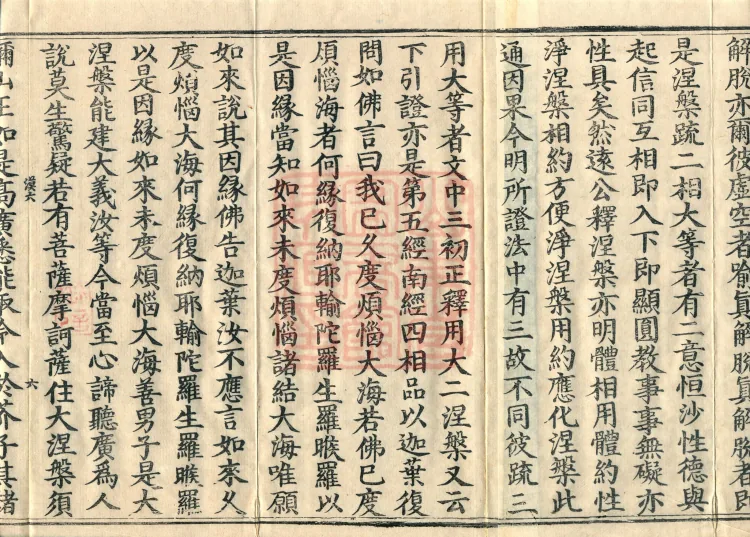 解脫亦爾彼虛空者喻眞解脫眞解脫者即
是涅槃䟽二相大等者有二意恒沙性德與
起信同互相即入下即顯圓教事事無礙亦
性具矣然遠公釋涅槃亦明體相用體約性
淨涅槃相約方便淨涅槃用約應化涅槃此
通因果今明所證法中有三故不同彼䟽三
用大等者文中三初正釋用大二涅槃又云
下引證亦是第五經南經四相品以迦葉復
問如佛言曰我已久度煩惱大海若佛已度
煩惱海者何緣復納耶輸陀羅生羅睺羅以
是因緣當知如來未度煩惱諸結大海唯願
如來說其因緣佛告迦葉汝不應言如來久
度煩惱大海何緣復納耶輸陀羅生羅睺羅
以是因緣如來未度煩惱大海善男子是大
涅槃能建大義汝等今當至心諦聽廣爲人
說莫生驚疑若有菩薩摩訶薩住大涅槃須
六
彌山王如是高廣悉能取令入於芥子其諸